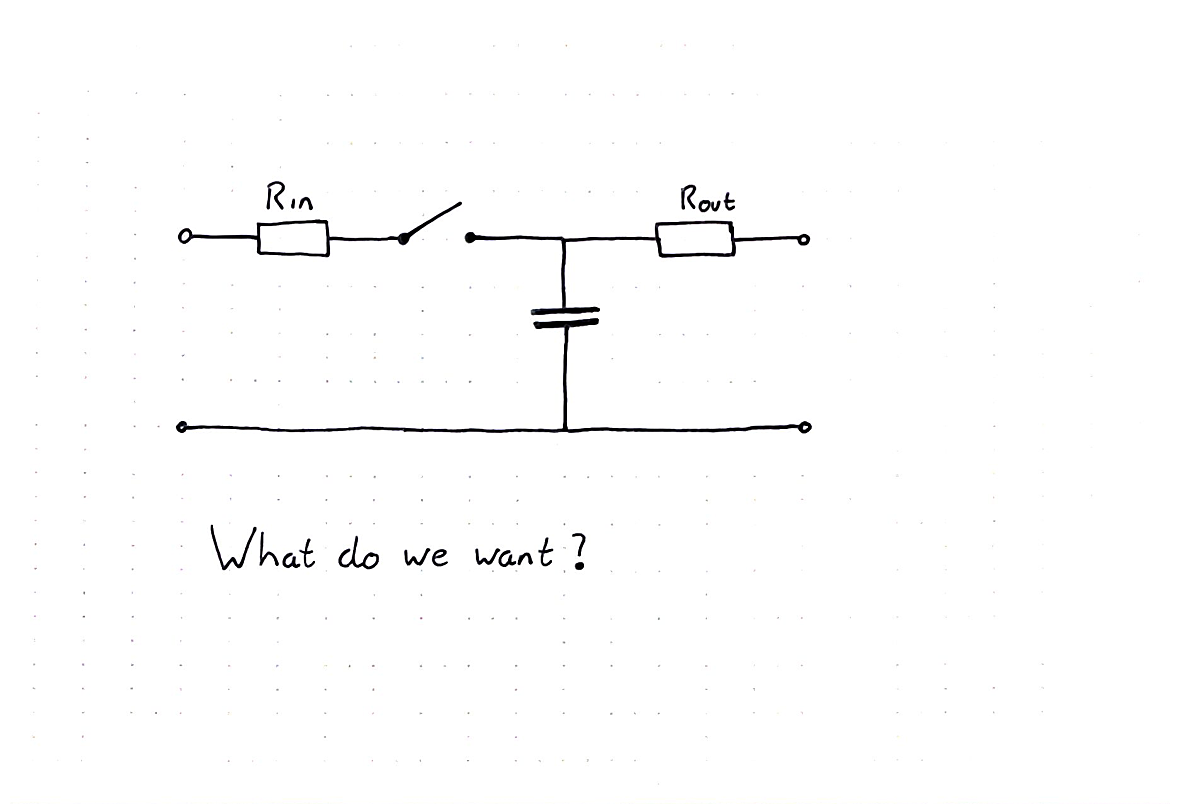 Rin
Rout
What do we want?